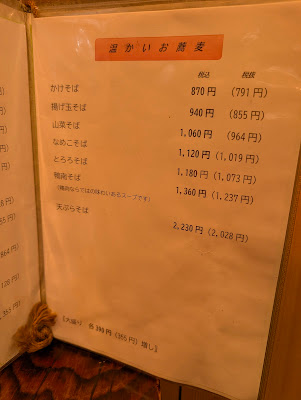 温かいお蕎麦
税込 税抜
かけそば 870 円 (791 円)
揚げ玉そば 940 円 (855 円)
山菜そば 1,060 円 (964 円)
なめこそば 1,120 円 (1,019 円)
とろろそば 1,180 円 (1,073 円)
鴨南そば 1,360 円 (1,237 円)
(鴨南ならではの味わいあるスープです)
天ぷらそば 2,230 円 (2,028 円)
《大盛り 各 390 円 (355 円) 増し》